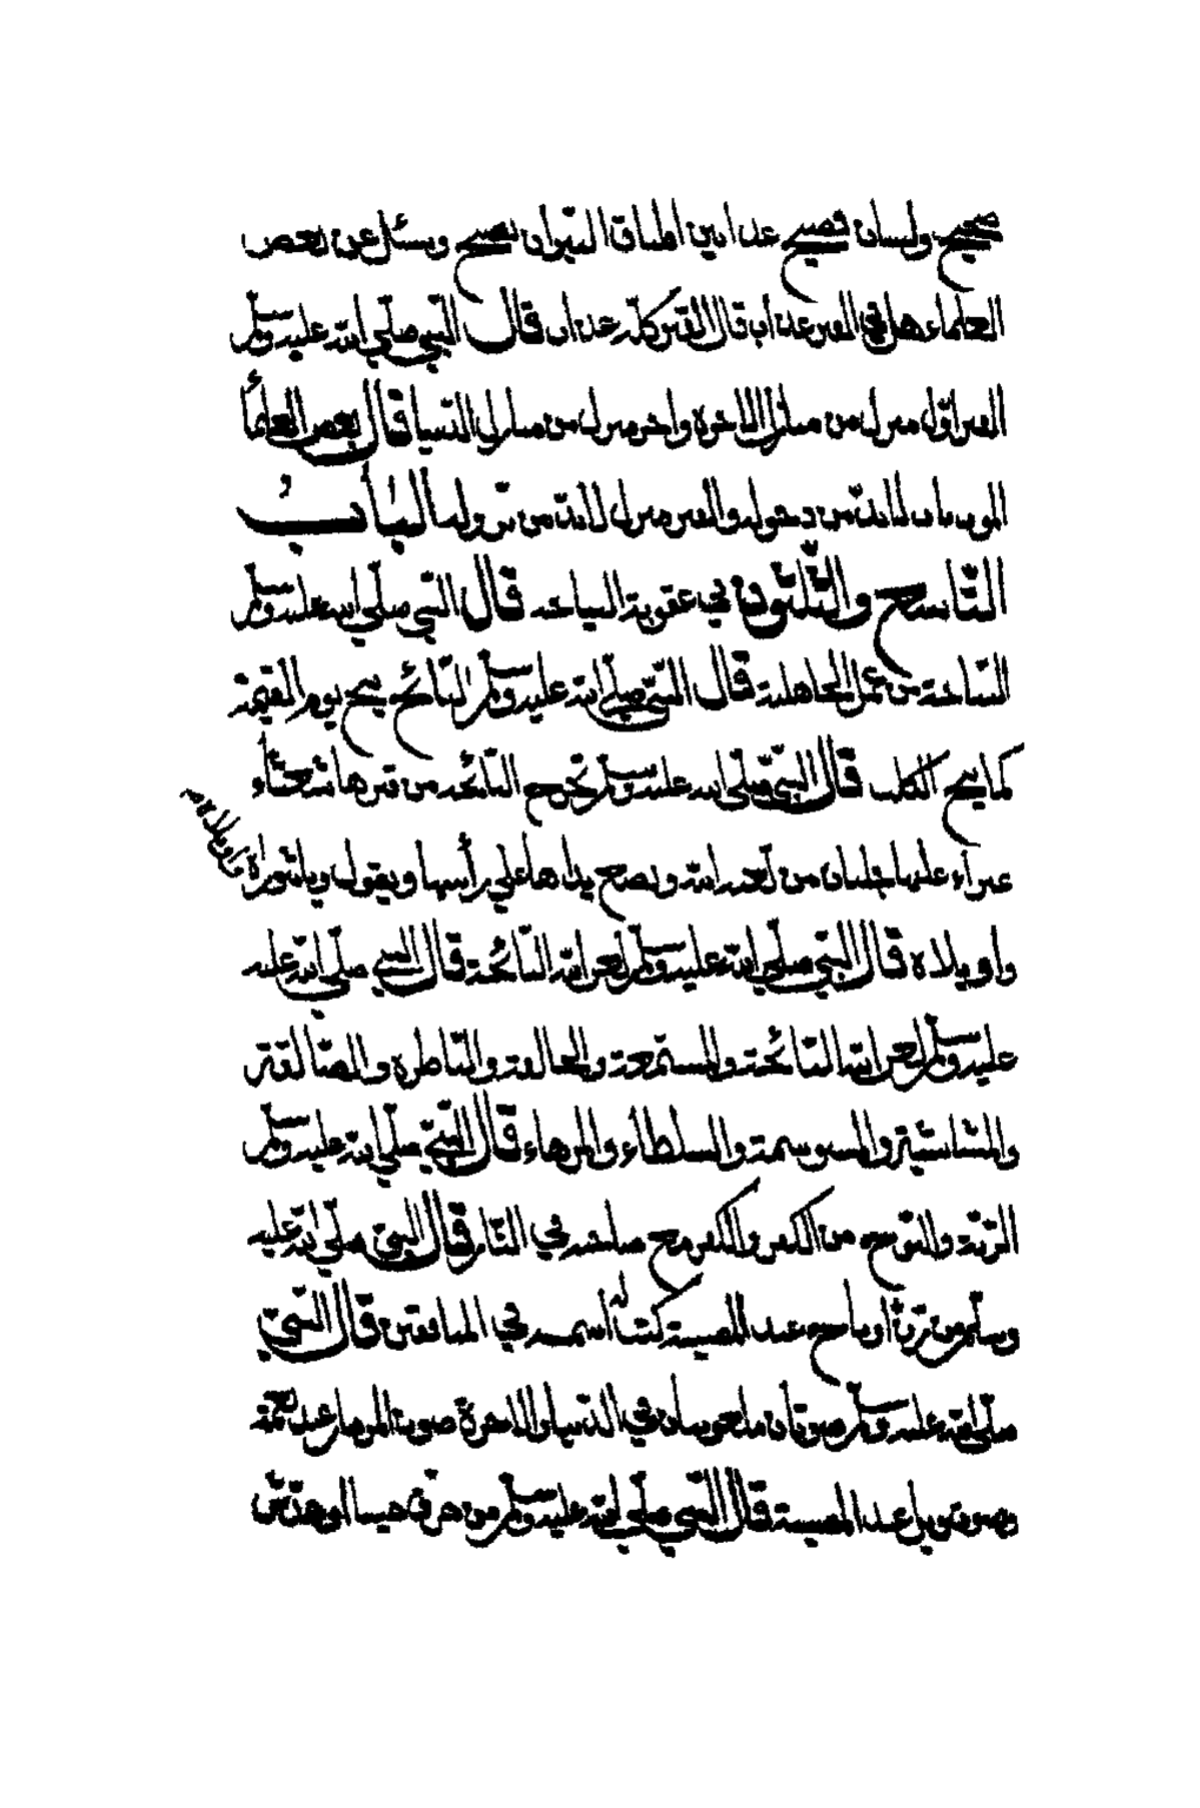 صحيح ولسان فصيح غدا بين اطباق النيران يصيح وسئل عن بعض
العلماء هل في القبر عذاب قال القبر كله عذاب قال النبي صلي الله عليه وسلم
القبر اول منزل من منازل الاخرة واخر منزل من منازل الدنيا قال بعض العلماء
الموت باب لا بد من دخوله والقبر منزل لا بد من نزوله الباب
التاسع والثلثون في عقوبة النياحة قال النبي صلي الله عليه وسلم
النياحة من عمل الجاهلية قال النبي صلي الله عليه وسلم النائحة ينبح يوم القيمة
كما ينبح الكلب قال النبي صلي الله عليه وسلم تخرج النائحة من قبرها شعثاء
غبراء عليها جلباب من لعنة الله وتضع يداها علي رأسها ويقول ويا ثبوراه
واويلاه
واويلاه قال النبي صلي الله عليه وسلم لعن الله النائحة قال النبي صلي الله عليه
عليه وسلم لعن الله النائحة والمستمعة والحالقة والناظرة والصالقة
والسلطاء والمرهاء قال النبي صلي الله عليه وسلم
الرنة والنوح من الكفر والكفر مع صاحبه في النار قال النبي صلي الله عليه
وسلم من رنة او ناح عند المصيبة كتب له اسمه في المنافقين قال النبي
صلي الله عليه وسلم صوتان ملعونان في الدنيا والاخرة صوت المزمار عند نعمة
وصوت ويل عند المصيبة قال النبي صلي الله عليه وسلم من